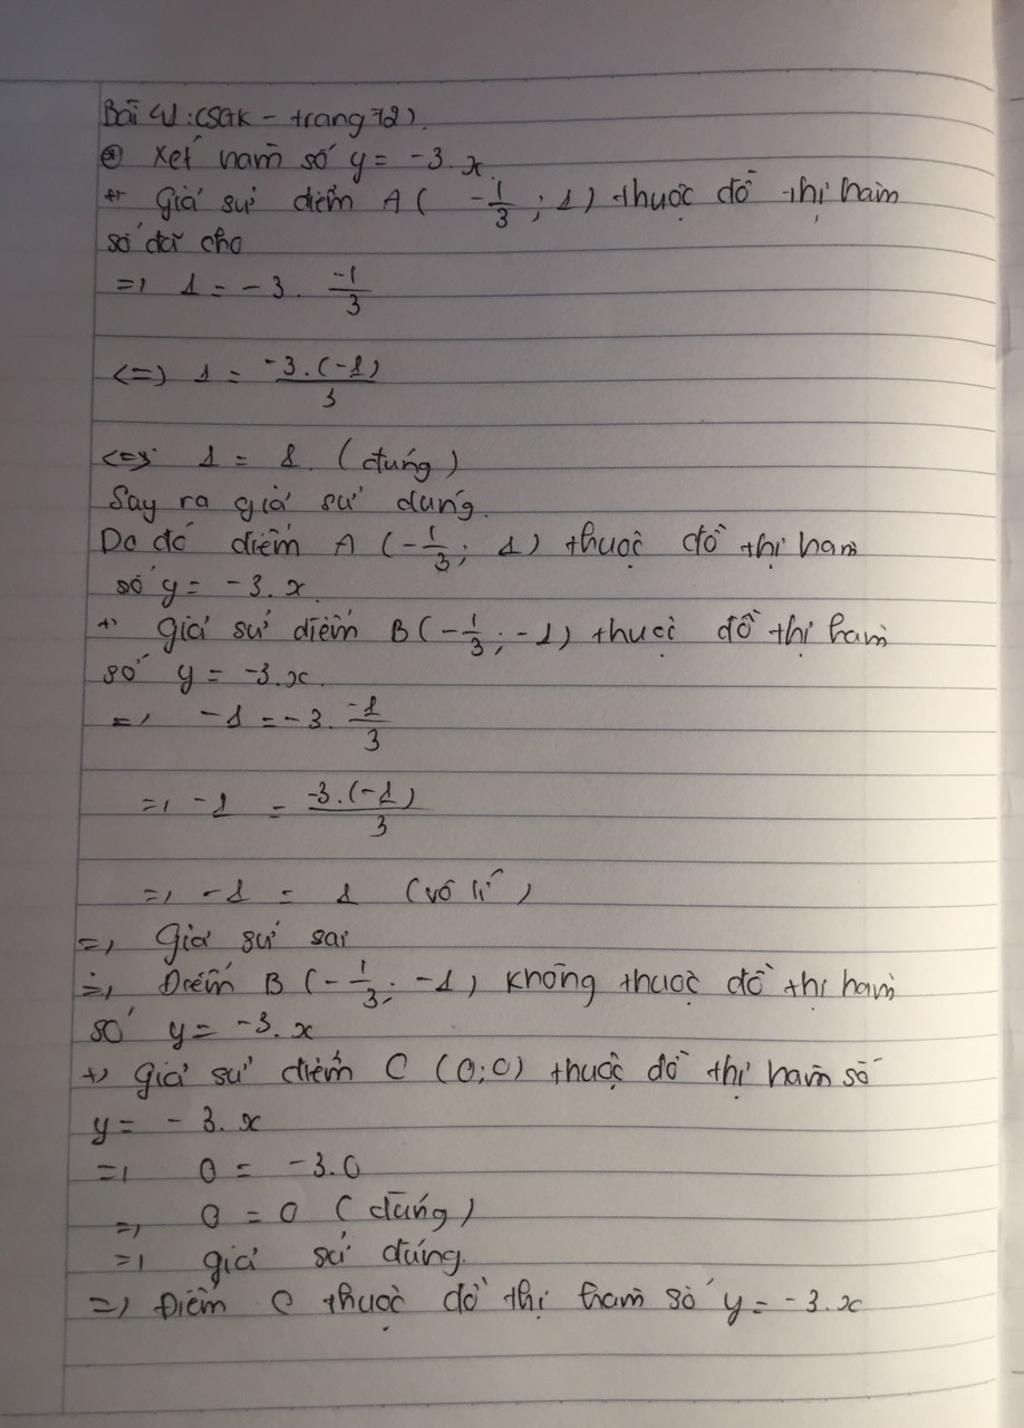 Bài 41: (SGK - trang 72).
* Xét hàm số y = -3.x.
+ Giả sử điểm A ( -1/3 ; 1) thuộc đồ thị hàm
số đã cho
=> 1 = -3. -1/3
<=> 1 = -3.(-1)/3
<=> 1 = 1. (đúng)
Say ra giả sử đúng.
Do đó điểm A (-1/3; 1) thuộc đồ thị hàm
số y = -3.x.
+ giả sử điểm B(-1/3; -1) thuộc đồ thị hàm
số y = -3.x.
=> -1 = -3. -1/3
=> -1 = -3.(-1)/3
=> -1 = 1 (vô lí)
=> Giả sử sai
=> Điểm B (-1/3; -1) không thuộc đồ thị hàm
số y = -3.x
+) giả sử điểm C (0;0) thuộc đồ thị hàm số
y = -3.x
=> 0 = -3.0
=> 0 = 0 (đúng)
=> giả sử đúng.
=> Điểm C thuộc đồ thị hàm số y = -3.x